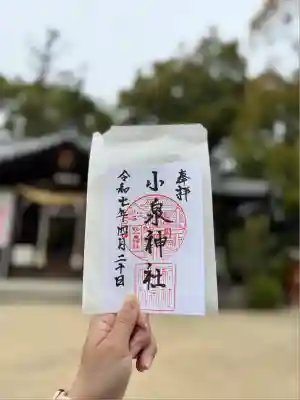 奉拝
小泉神社
令和七年四月二十日